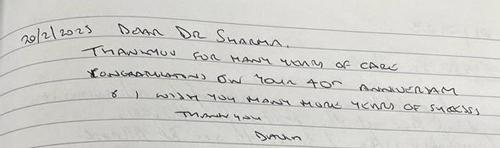 20/2/2025 DEAR DR SHARMA.
THANKYOU FOR MANY YEARS OF CARE
CONGRATULATIONS ON YOUR 40th ANNIVERSARY
& I WISH YOU MANY MORE YEARS OF SUCCESS
THANK YOU